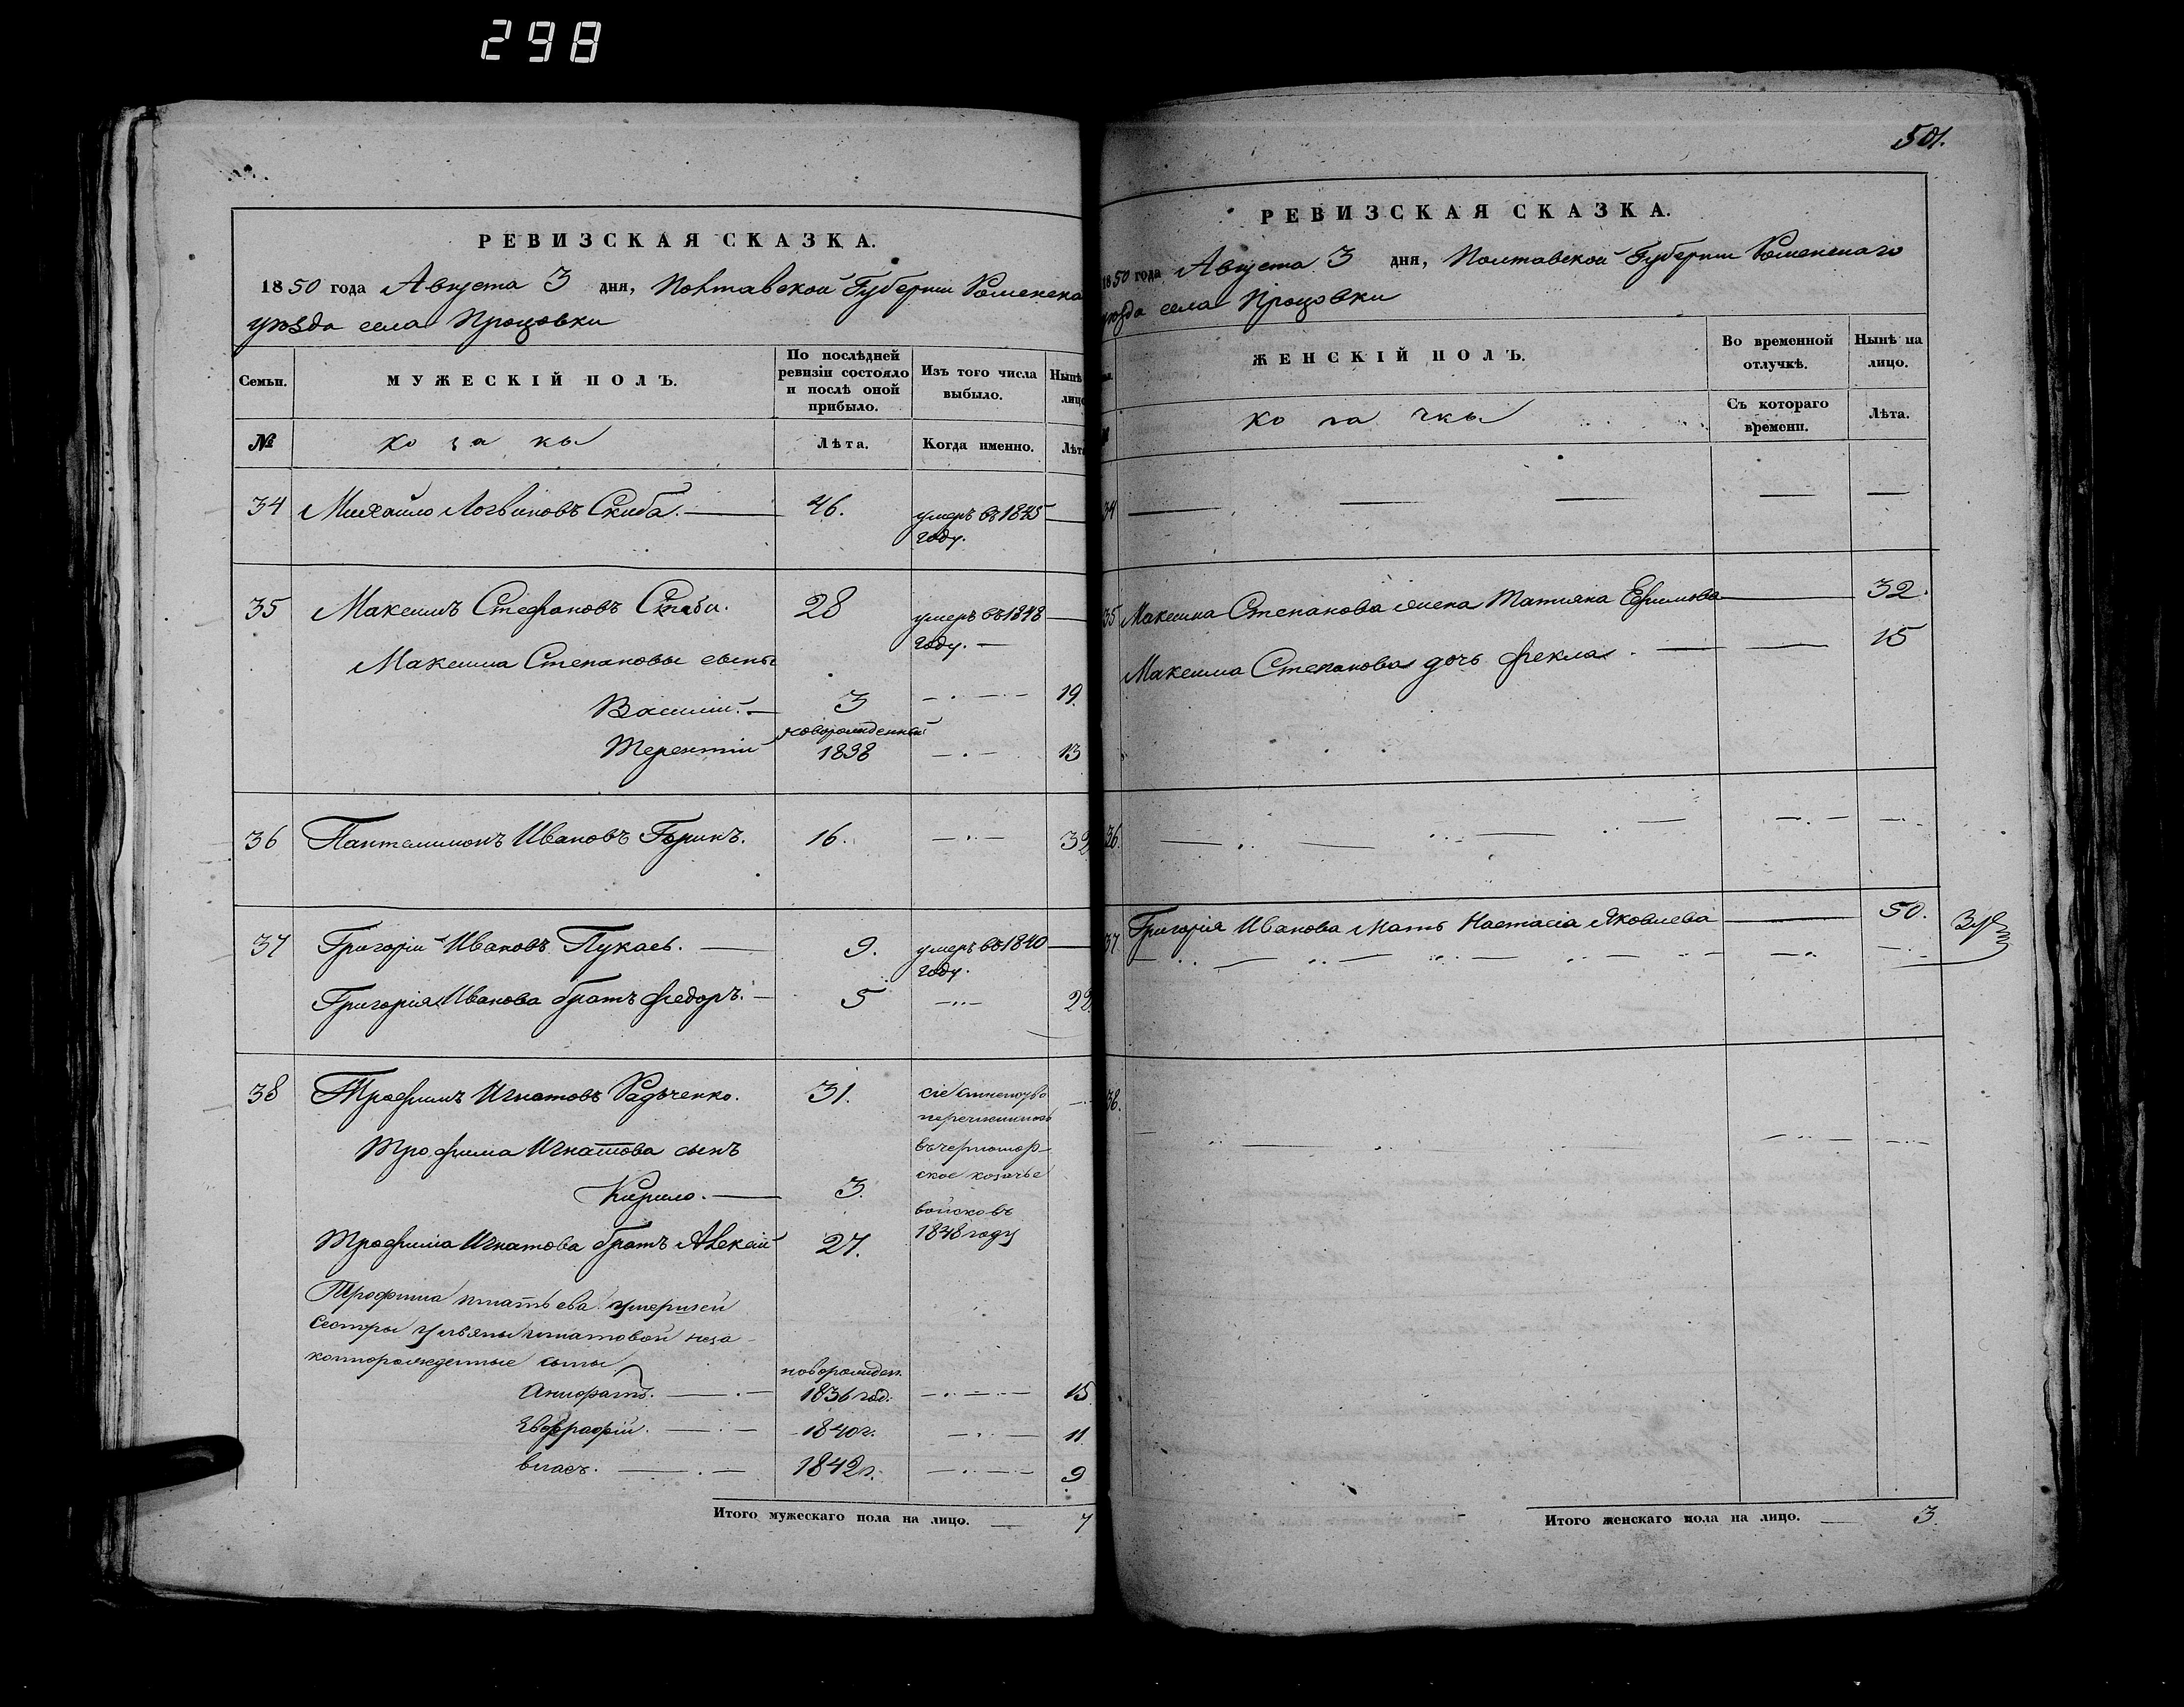 298
РЕВИЗСКАЯ СКАЗКА.
1850 года Августа 3 дня, Полтавской Губернии Роменска
уѣзда села Процовки
Семьи.
МУЖЕСКІЙ ПОЛЪ.
По послѣдней ревизіи состояло и послѣ оной прибыло.
Изъ того числа выбыло.
Нынѣ лицо
№
козаки
Лѣта.
Когда именно.
Лѣта
34 Михайло Логвиновъ Скиба. 46. умеръ въ 1845
году.
35 Максимъ Стефановъ Скиба. 28 умеръ въ 1848
году.
Максима Степановы сыны
Василий. 3 19.
новорожденный
Терентій 1838 13
36 Пантелимонъ Ивановъ Горикъ. 16. 32
37 Григорій Ивановъ Пукась. 9. умеръ въ 1840
году.
Григорія Иванова братъ Федоръ. 5 22
38 Трофимъ Игнатовъ Радченко. 31. сіе семейство
перечислино
Трофима Игнатова сынъ въ черномор-
ское козачье
Кирило. 3. войско въ
Трофима Игнатова братъ Алексій 27. 1848 году
Трофима Игнатьева умершей
сестры Ульяны Игнатовой неза-
коннорожденные сыны
новорожден.
1836 год. 15
Евграфій. 1840 г. 11
Власъ. 1842 г. 9
Итого мужескаго пола на лицо. 7
501.
РЕВИЗСКАЯ СКАЗКА.
1850 года Августа 3 дня, Полтавской Губернии Роменскаго
уѣзда села Процовки
ЖЕНСКІЙ ПОЛЪ.
Во временной отлучкѣ.
Нынѣ на лицо.
козачки
Съ котораго времени.
Лѣта.
34
35 Максима Степанова жена Татияна Ефимова 32.
Максима Степанова дочь Фекла. 15
36.
37 Григорія Иванова Мать Настасіа Яковлева 50.
38.
Итого женскаго пола на лицо. 3.